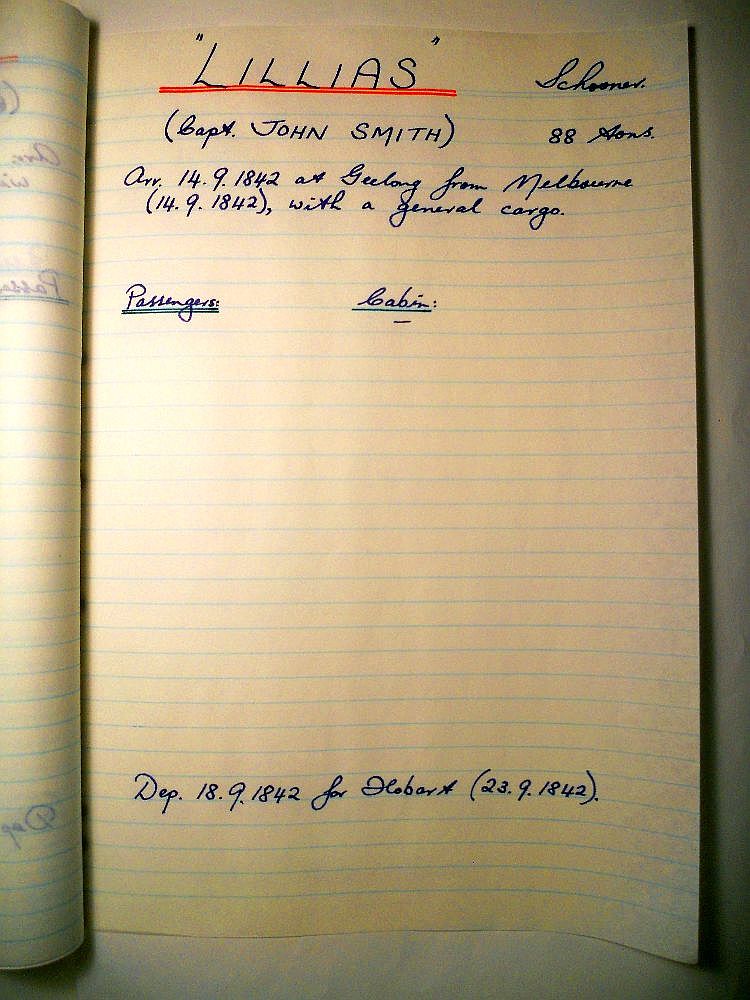 "LILLIAS" Schooner.
(Capt. JOHN SMITH) 88 tons.
Arr. 14.9.1842 at Geelong from Melbourne
(14.9.1842), with a general cargo.
Passengers: Cabin:
—
Dep. 18.9.1842 for Hobart (23.9.1842).